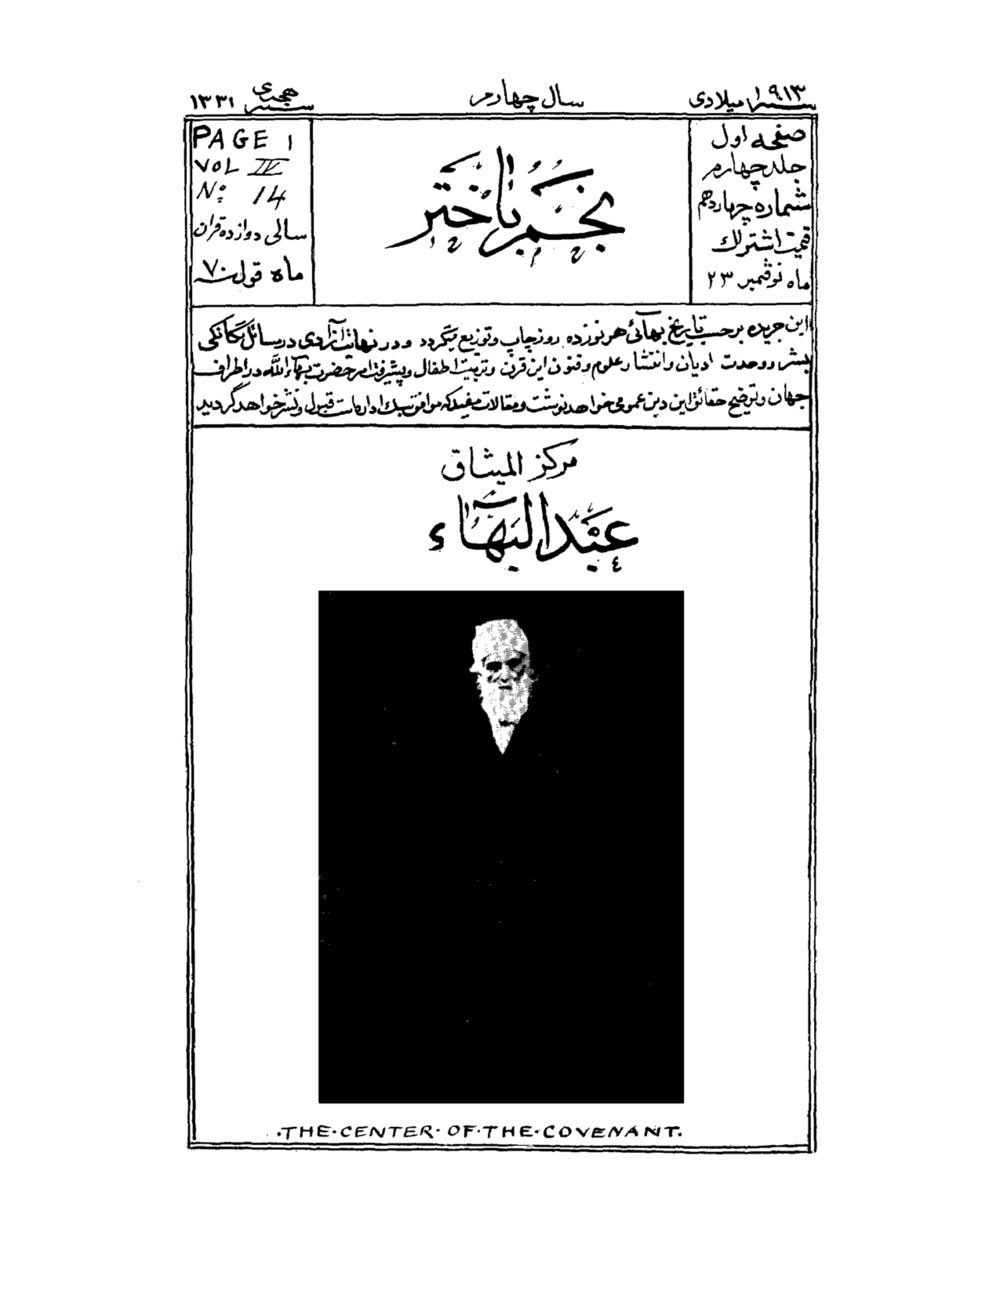 سنه ۱۹۱۳ میلادی
سال چهارم
سنه ۱۳۳۱ هجری
صفحه اول
جلد چهارم
شماره چهاردهم
قیمت اشتراک
ماه نوڤمبر ۲۳
نجم باختر
PAGE 1
VOL IV
No: 14
سالی دوازده قران
ماه قول سنه ۷۰
این جریده بر حسب تاریخ بهائی هر نوزده روز چاپ و توزیع میگردد و در نهایت آزادی در مسائل یگانگی
بشر و وحدت ادیان و انتشار علوم و فنون این قرن و تربیت اطفال و پیشرفت امر حضرت بهاء الله در اطراف
جهان و توضیح حقائق این دین عمومی خواهد نوشت و مقالات مفیده که موافق مسلک اداره است قبول و نشر خواهد گردید
مرکز المیثاق
عبدالبهاء
.THE·CENTER·OF·THE·COVENANT.